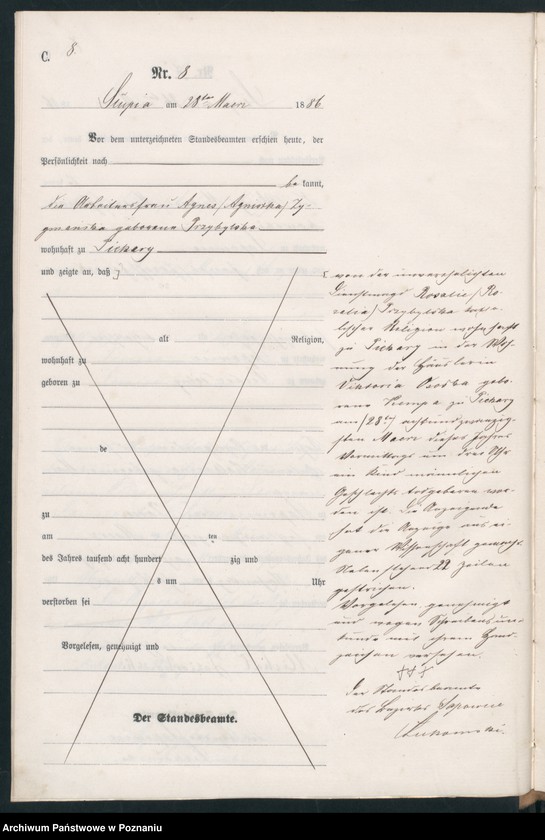 C. 8.
Nr. 8
Słupia am 28ten Maerz 1886
Vor dem unterzeichneten Standesbeamten erschien heute, der
Persönlichkeit nach
be kannt,
die Arbeitersfrau Agnes /Agnieszka/ Zy-
gmanska geborene Przybylska
wohnhaft zu Piekary
und zeigte an, daß
alt Religion,
wohnhaft zu
geboren zu
de
zu
am ten
des Jahres tausend acht hundert zig und
s um Uhr
verstorben sei
Vorgelesen, genehmigt und
Der Standesbeamte.
von der unverehelichten
Dienstmagd Rosalie /Ro-
zalia/ Przybylska katho-
lischer Religion wohnhaft
zu Piekary in der Woh-
nung der Häuslerin
Viktoria gebo-
rene zu Piekary
am /28ten/ achtundzwanzig-
sten Maerz dieses Jahres
Vormittags um drei Uhr
ein Kind männlichen
Geschlechts todgeboren wor-
den ist. Die Anzeigende
hat die Anzeige aus ei-
gener Wissenschaft gemacht.
Nebenstehend 22 Zeilen
gestrichen.
Vorgelesen, genehmigt
und wegen Schreibensun-
kunde mit ihrem Hand-
zeichen versehen.
†††
Der Standesbeamte
des Bezirks
Archiwum Państwowe w Poznaniu